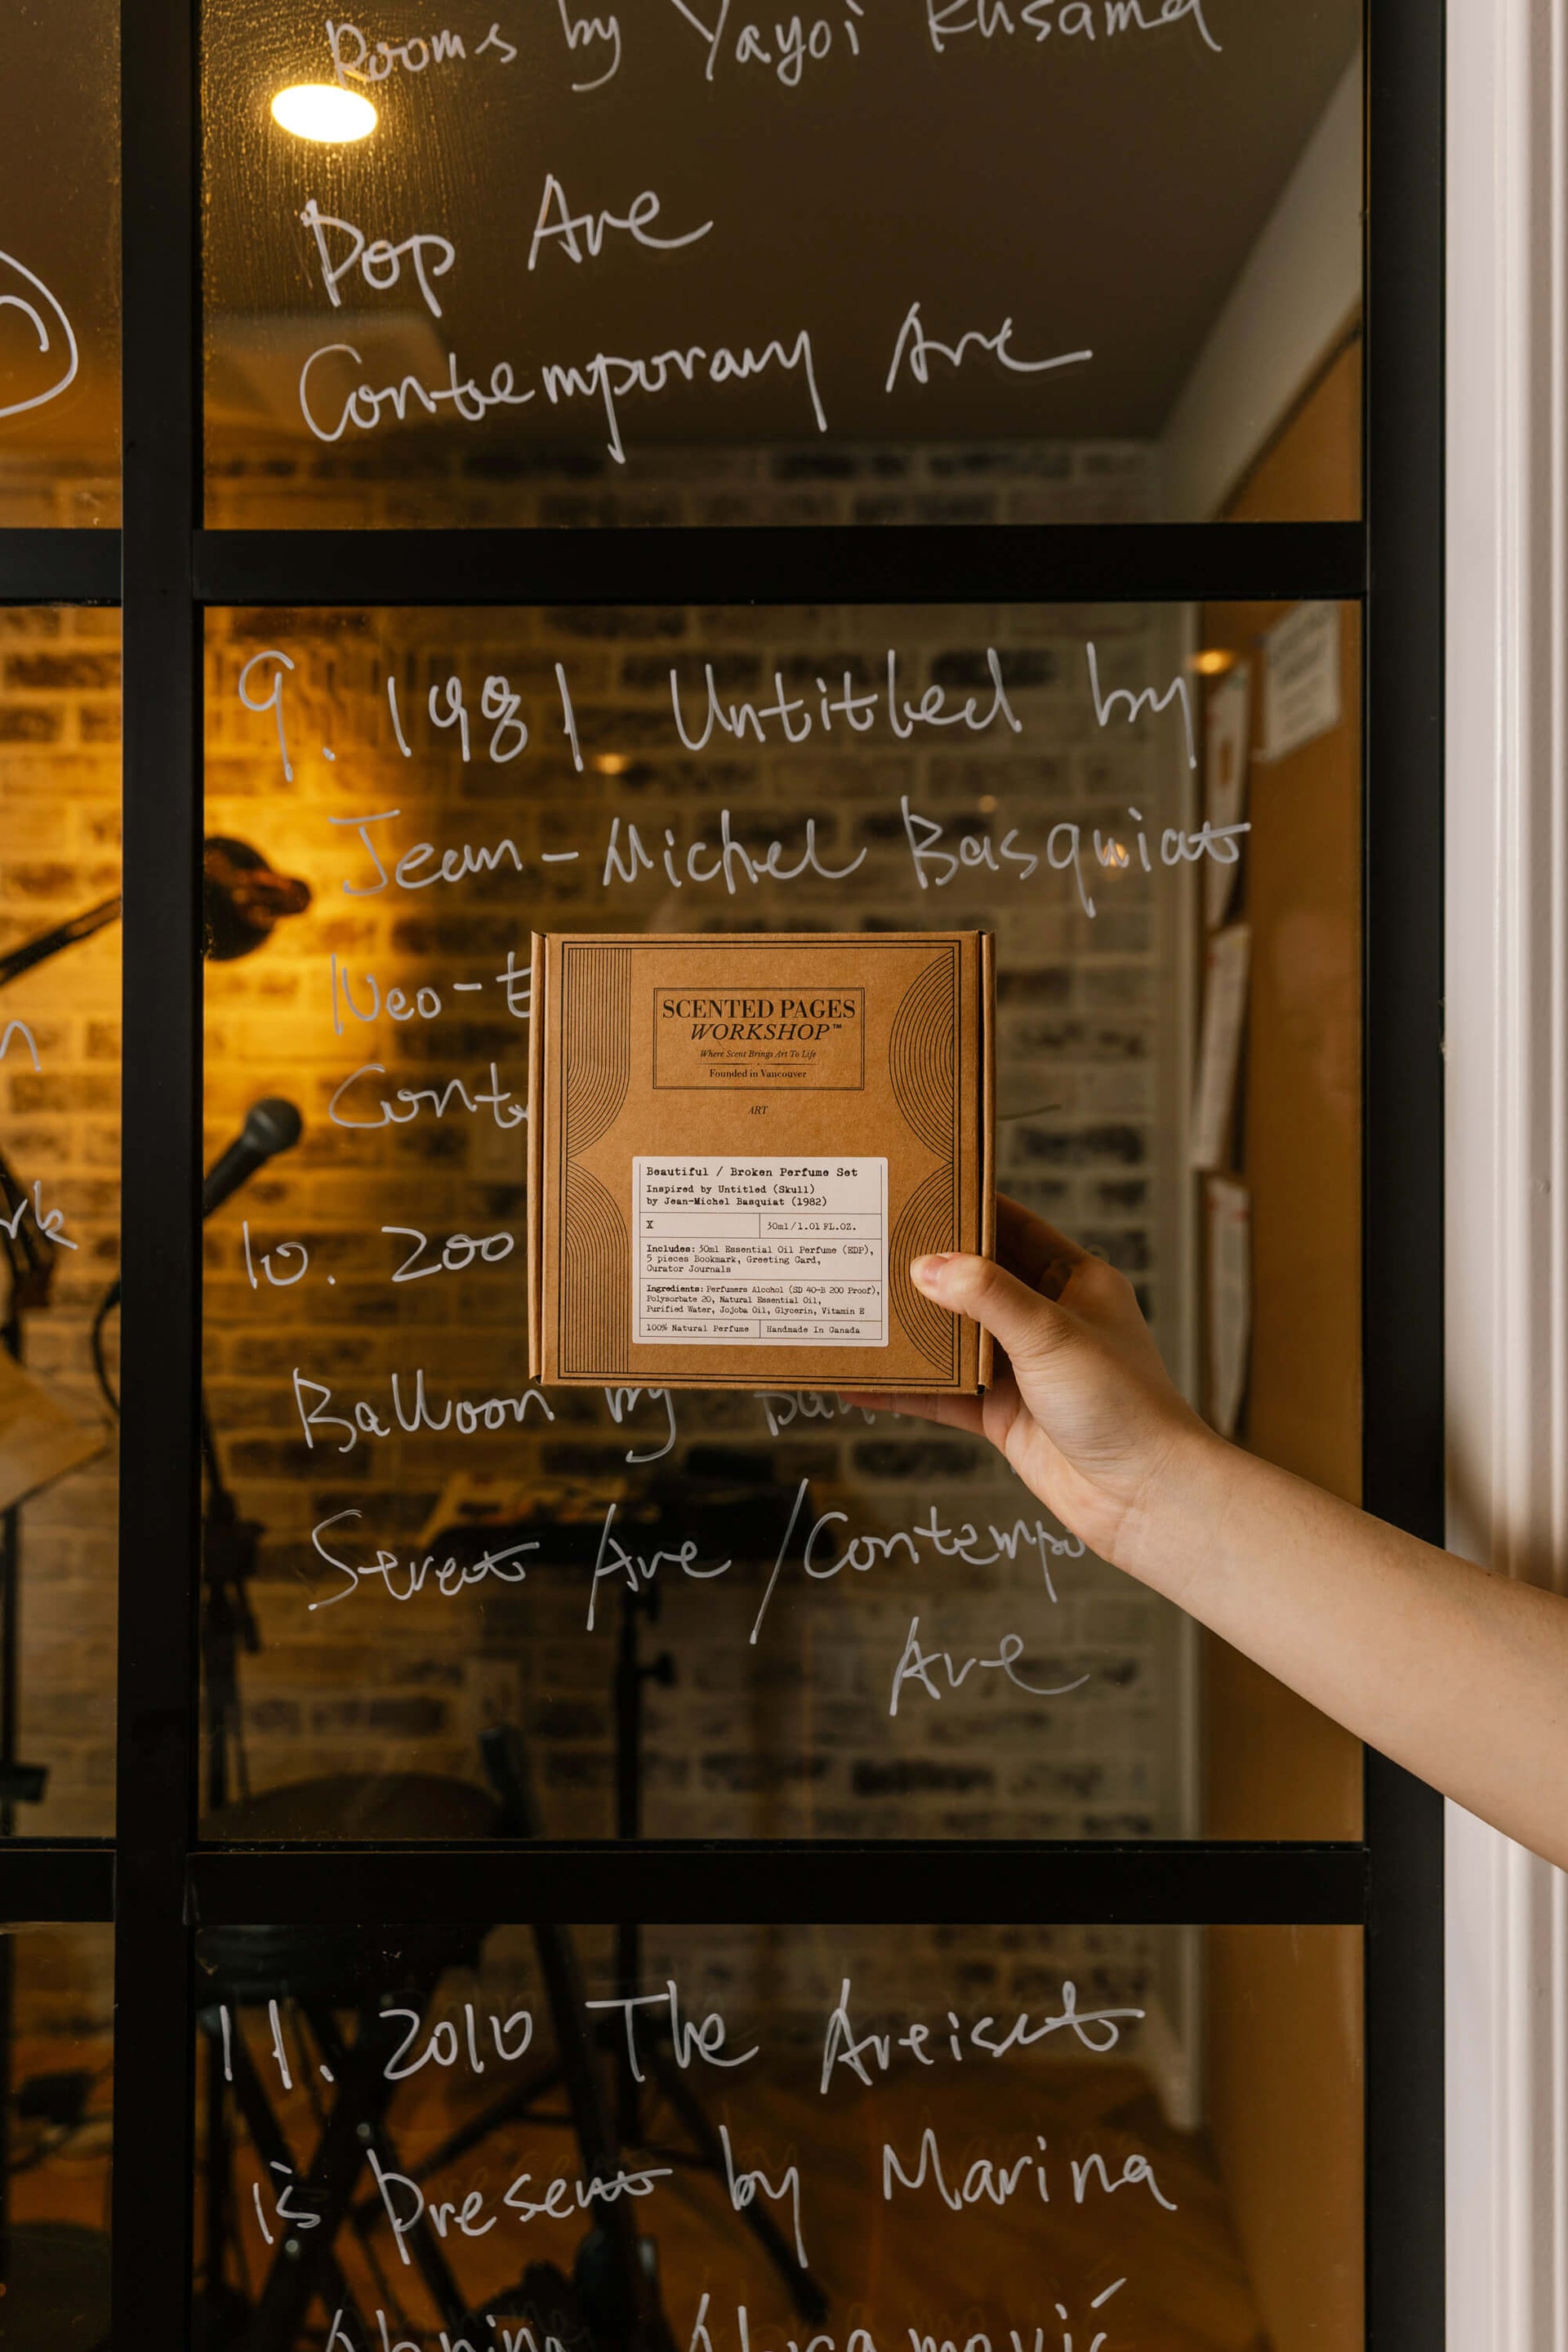 Rooms by Yayoi Kusama
Pop Art
Contemporary Art
9. 1981 Untitled by
Jean-Michel Basquiat
Neo-
10. 200
Balloon by
Street Art / Contempo
Art
11. 2010 The Artist
is Present by Marina
Abramović
SCENTED PAGES
WORKSHOP™
Where Scent Brings Art To Life
Founded in Vancouver
ART
Beautiful / Broken Perfume Set
Inspired by Untitled (Skull)
by Jean-Michel Basquiat (1982)
X
30ml/1.01 FL.OZ.
Includes: 30ml Essential Oil Perfume (EDP),
5 pieces Bookmark, Greeting Card,
Curator Journals
Ingredients: Perfumers Alcohol (SD 40-B 200 Proof),
Polysorbate 20, Natural Essential Oil,
Purified Water, Jojoba Oil, Glycerin, Vitamin E
100% Natural Perfume
Handmade In Canada